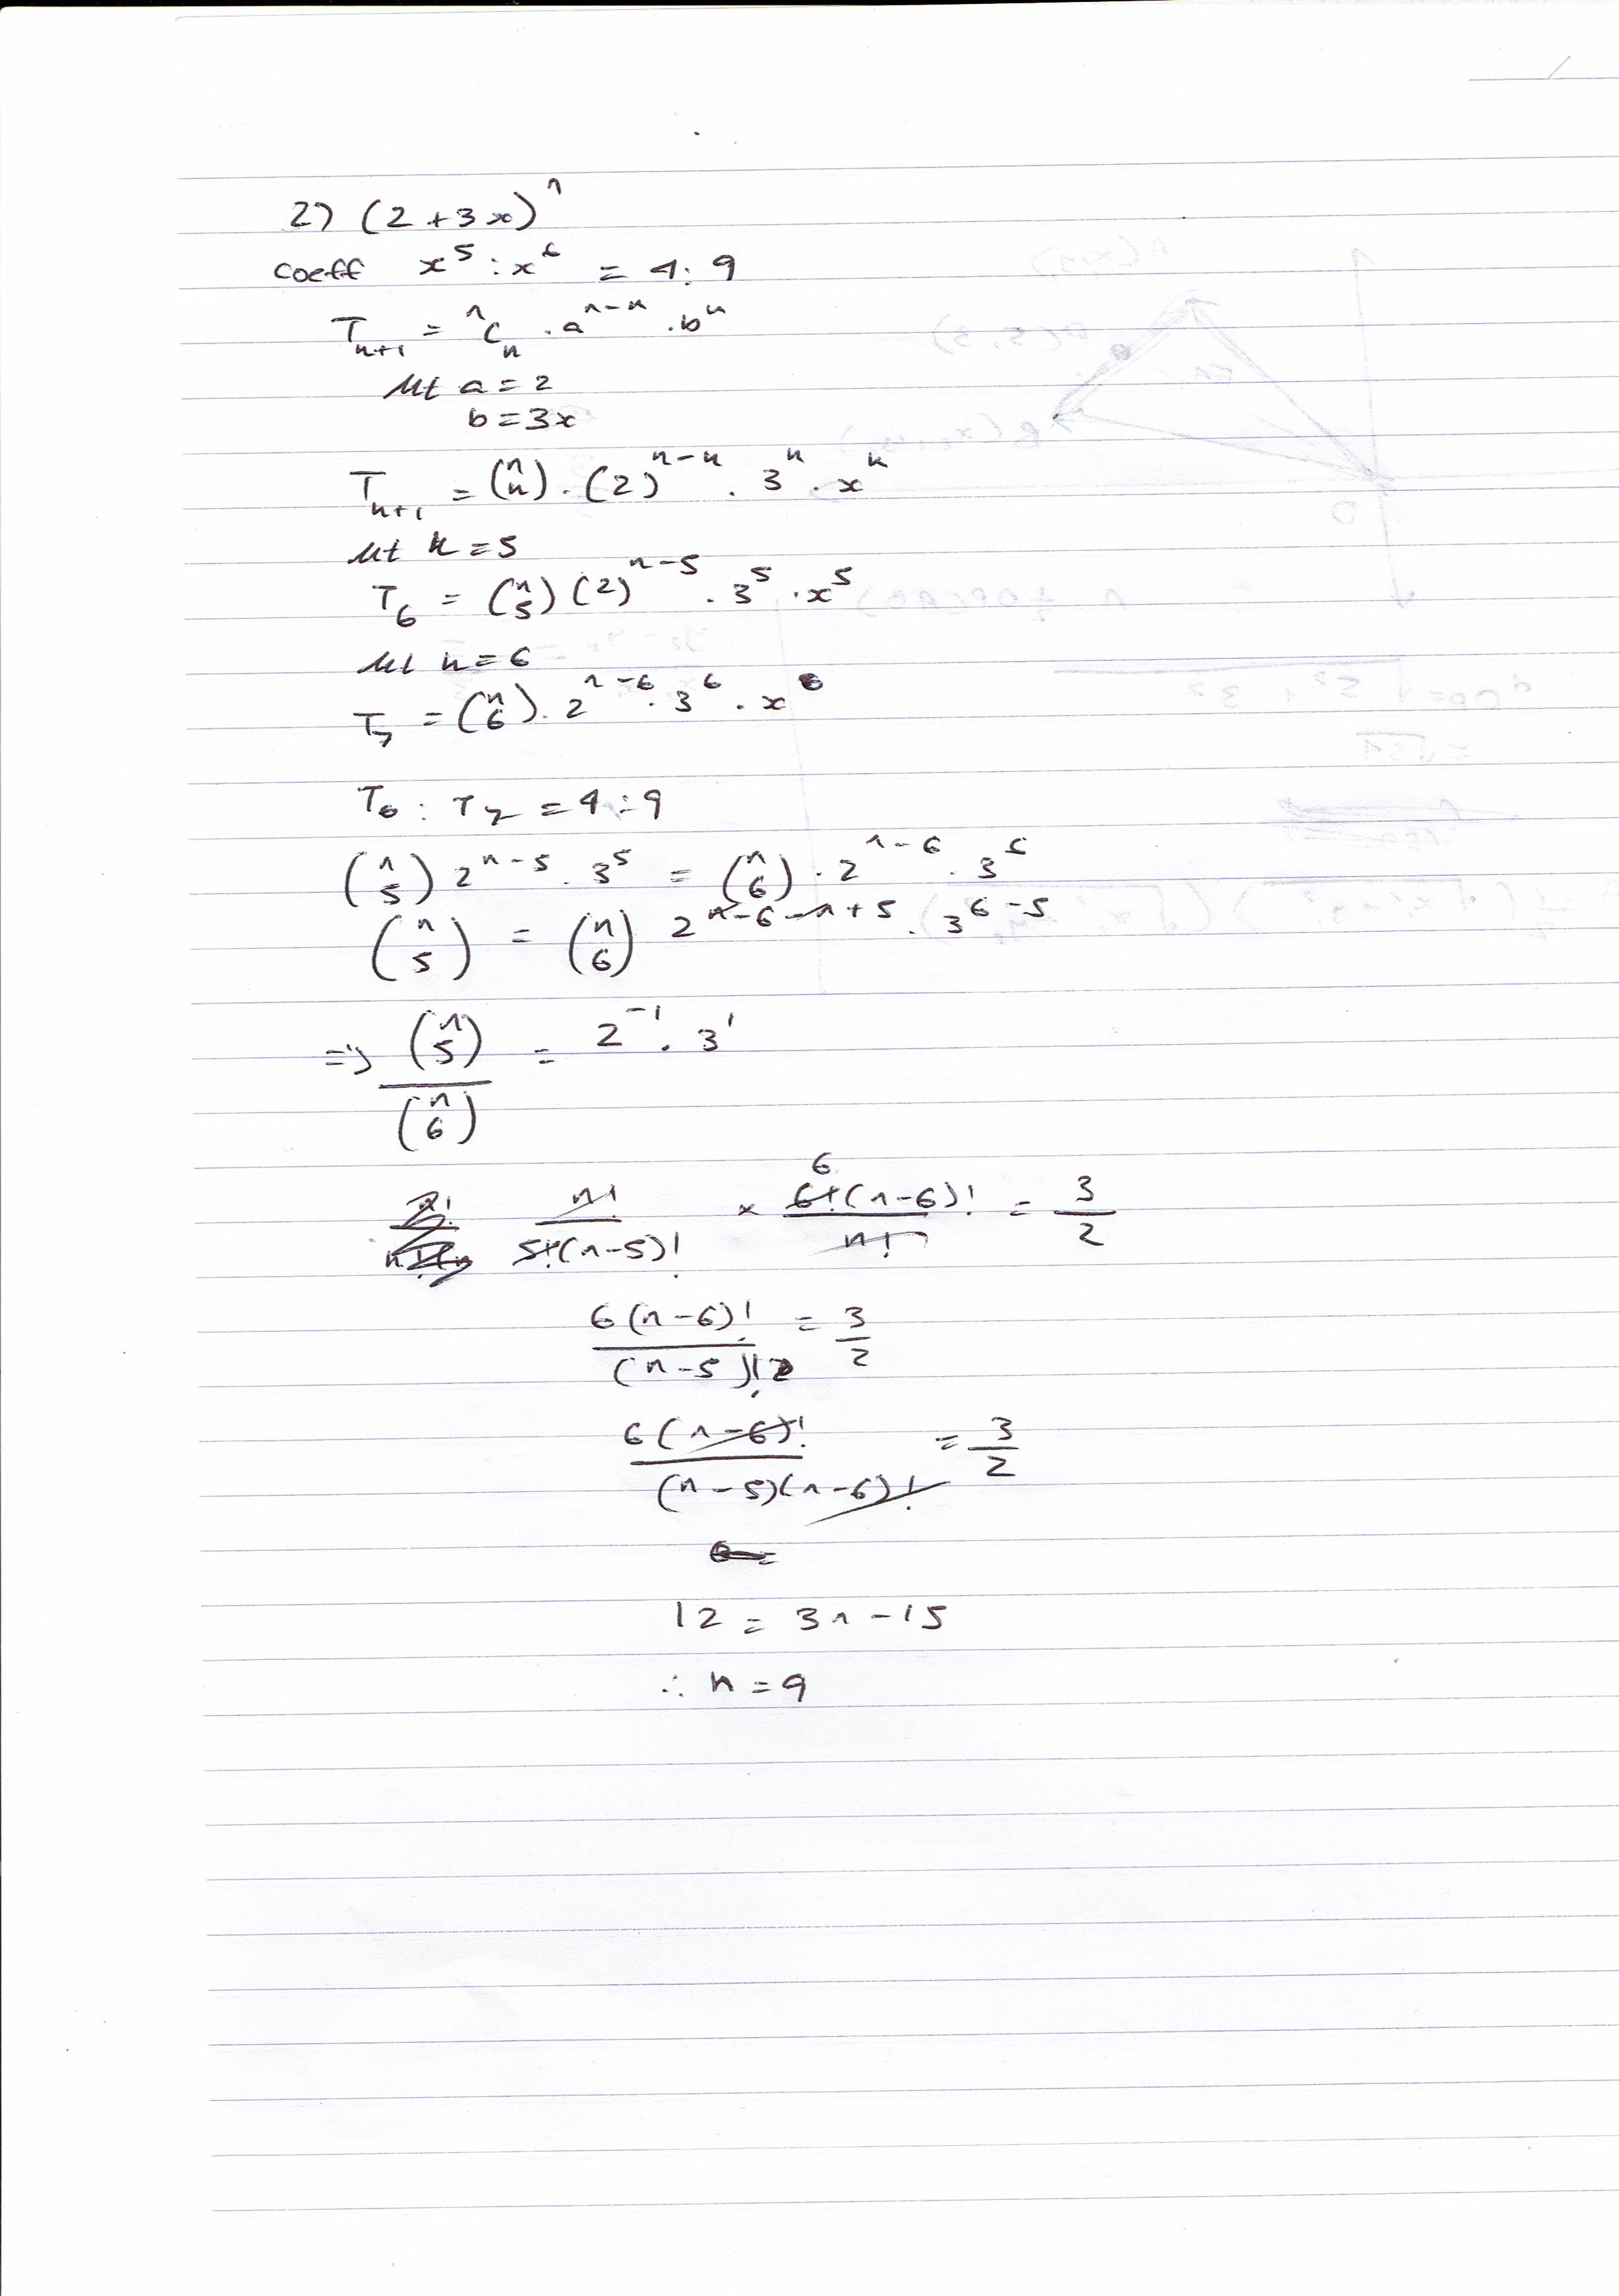 2) (2+3x)^n
coeff x^5 : x^6 = 4:9
T_{k+1} = ^nC_k . a^{n-k} . b^k
let a = 2
b = 3x
T_{k+1} = (n k) . (2)^{n-k} . 3^k . x^k
let k = 5
T_6 = (n 5) (2)^{n-5} . 3^5 . x^5
let k = 6
T_7 = (n 6) . 2^{n-6} . 3^6 . x^6
T_6 : T_7 = 4:9
(n 5) 2^{n-5} . 3^5 = (n 6) . 2^{n-6} . 3^6
(n 5) = (n 6) 2^{n-6-n+5} . 3^{6-5}
=> (n 5) / (n 6) = 2^{-1} . 3^1
n! / 5!(n-5)! × 6 6!(n-6)! / n! = 3/2
6(n-6)! / (n-5)! = 3/2
6(n-6)! / (n-5)(n-6)! = 3/2
12 = 3n-15
∴ n = 9